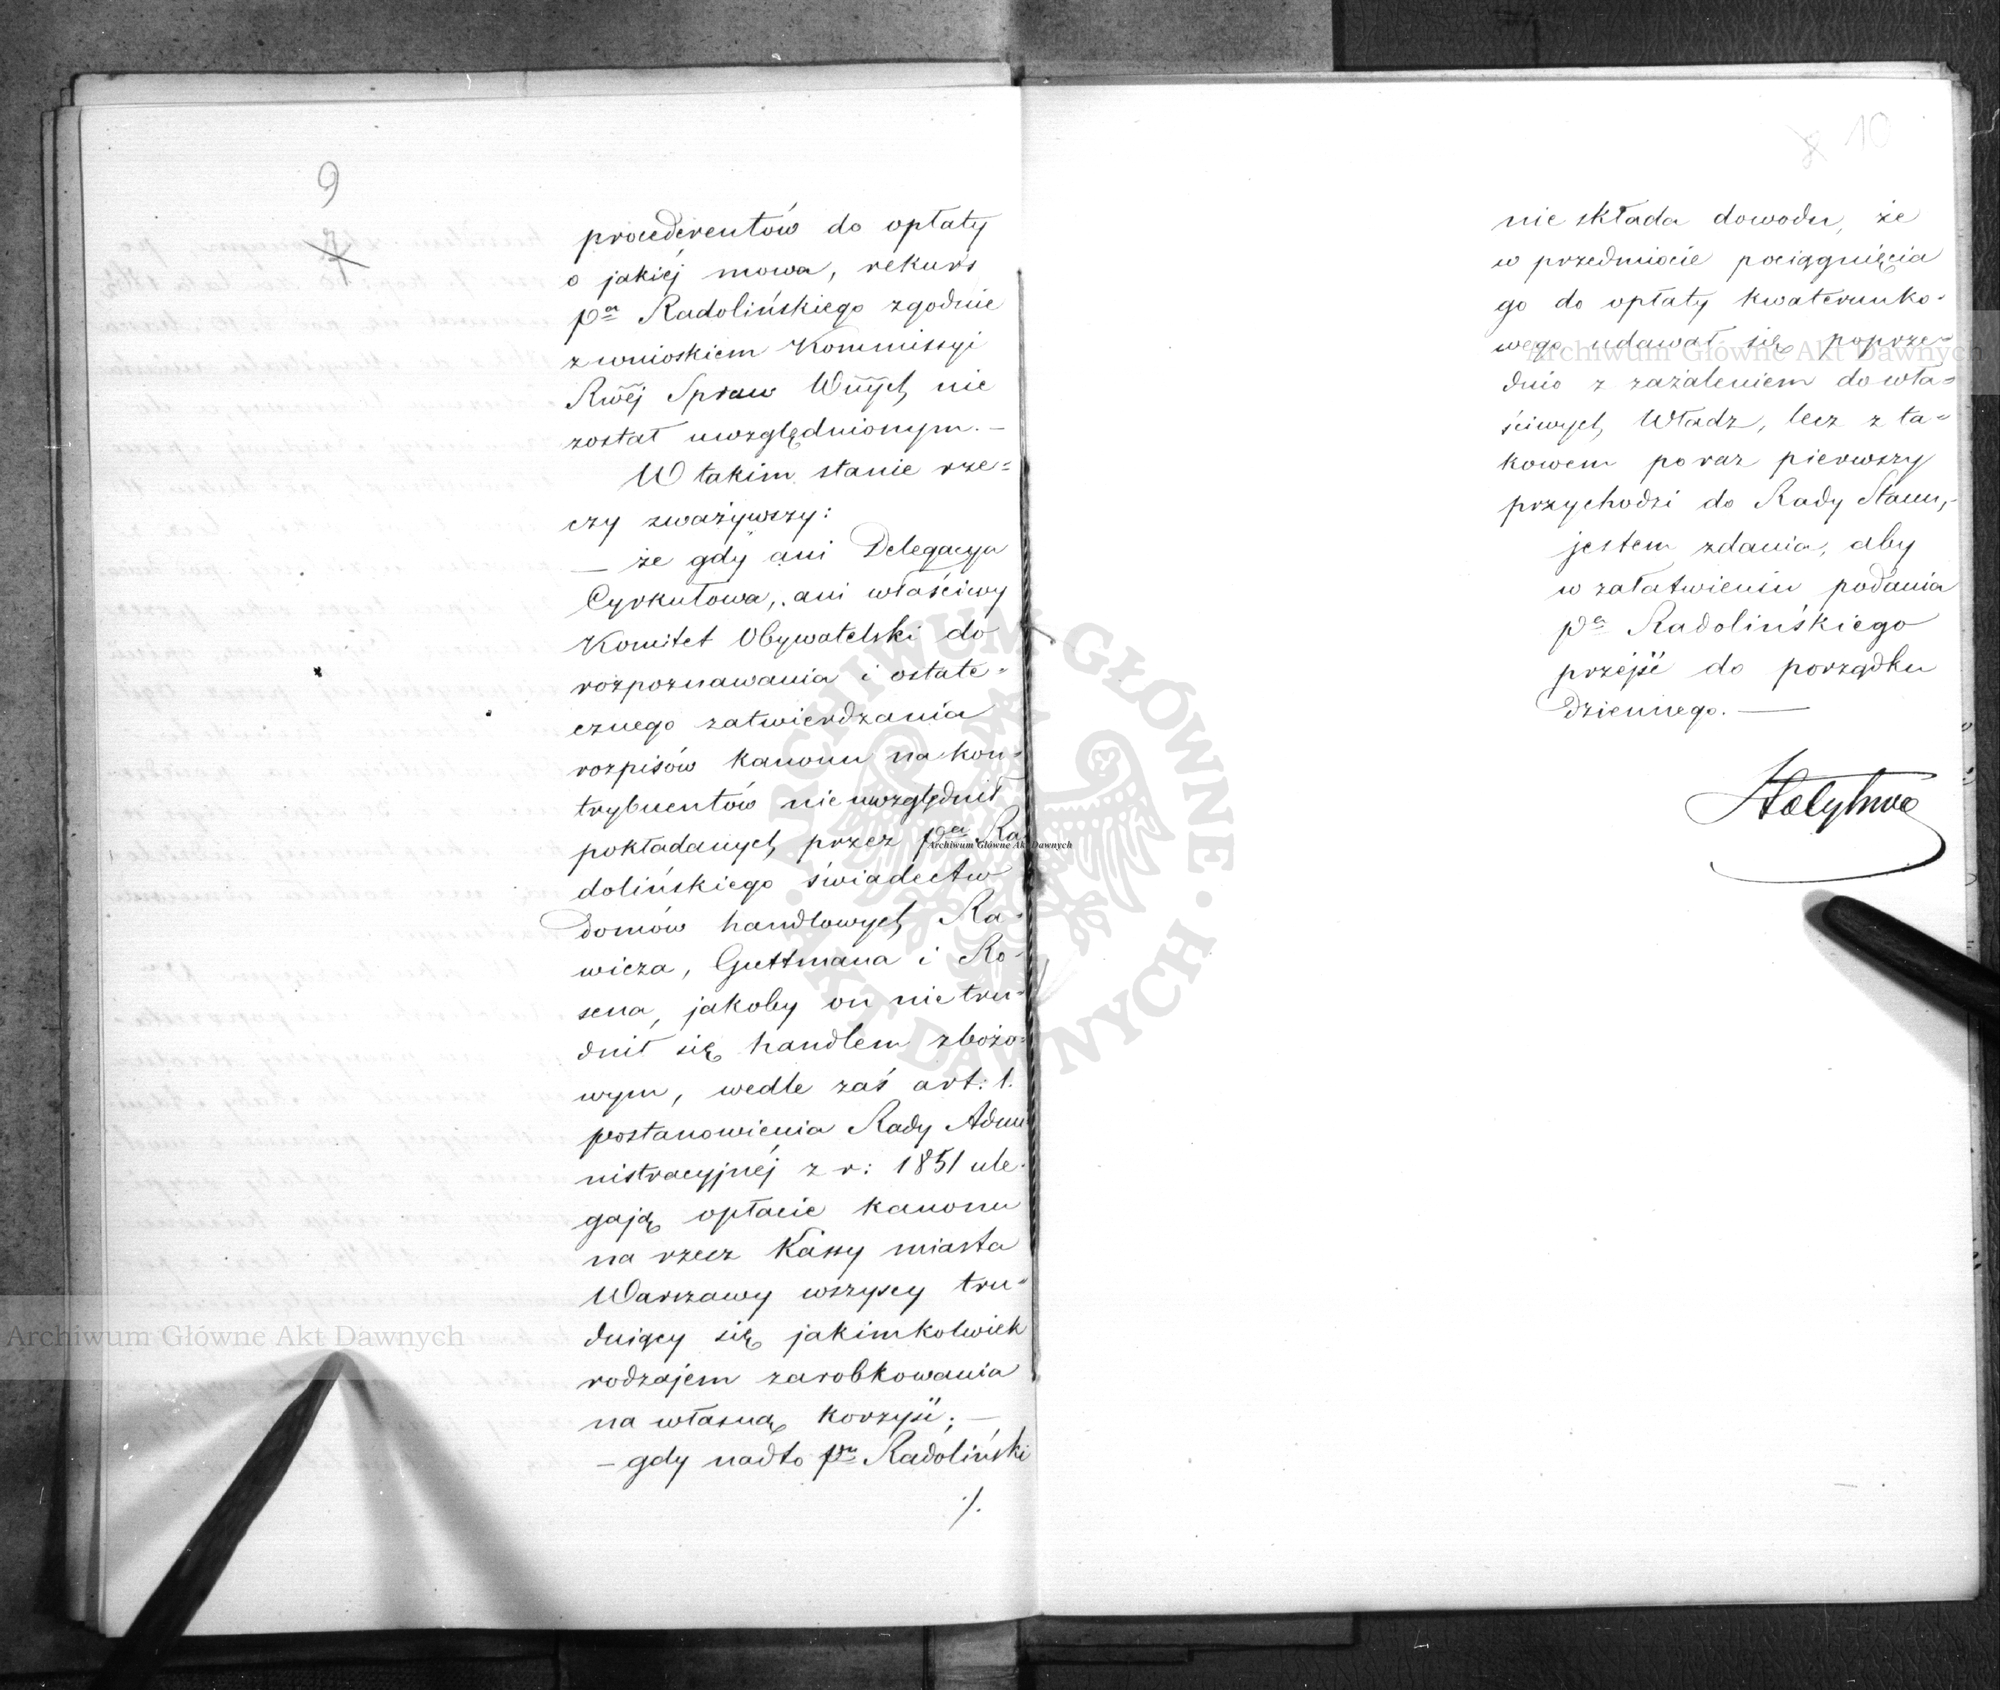 9
7
procederentów do opłaty
o jakiéj mowa, rekurs
pa Radolińskiego zgodnie
z wnioskiem Kommissyi
Rwéj Spraw Wnych nie
został uwzględnionym. —
W takim stanie rze=
czy zważywszy:
— że gdy ani Delegacya
Cyrkułowa, ani właściwy
Komitet Obywatelski do
rozpoznawania i ostate=
cznego zatwierdzania
rozpisów kanonu na kon=
trybuentów nie uwzględnił
pokładanych przez pa Ra=
dolińskiego świadectw
Domów handlowych Ra=
wicza, Guttmana i Ro=
sena, jakoby on nie tru=
dnił się handlem zbożo=
wym, wedle zaś art: 1.
postanowienia Rady Admi
nistracyjnéj z r: 1851 ule=
gają opłacie kanonu
na rzecz Kassy miasta
Warszawy wszyscy tru=
dniący się jakimkolwiek
rodzajem zarobkowania
na własną korzyść; —
— gdy nadto pn Radoliński
./.
10
nie składa dowodu, że
w przedmiocie pociągnięcia
go do opłaty kwaterunko=
wego udawał się poprze=
dnio z zażaleniem do wła=
ściwych Władz, lecz z ta=
kowem po raz pierwszy
przychodzi do Rady Stanu,—
jestem zdania, aby
w załatwieniu podania
pa Radolińskiego
przejść do porządku
Dziennego. —
Archiwum Główne Akt Dawnych
Archiwum Główne Akt Dawnych
Archiwum Główne Akt Dawnych
ARCHIWUM GŁÓWNE · AKT DAWNYCH ·